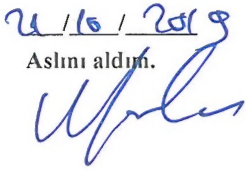 21/10/2019
Aslını aldım.